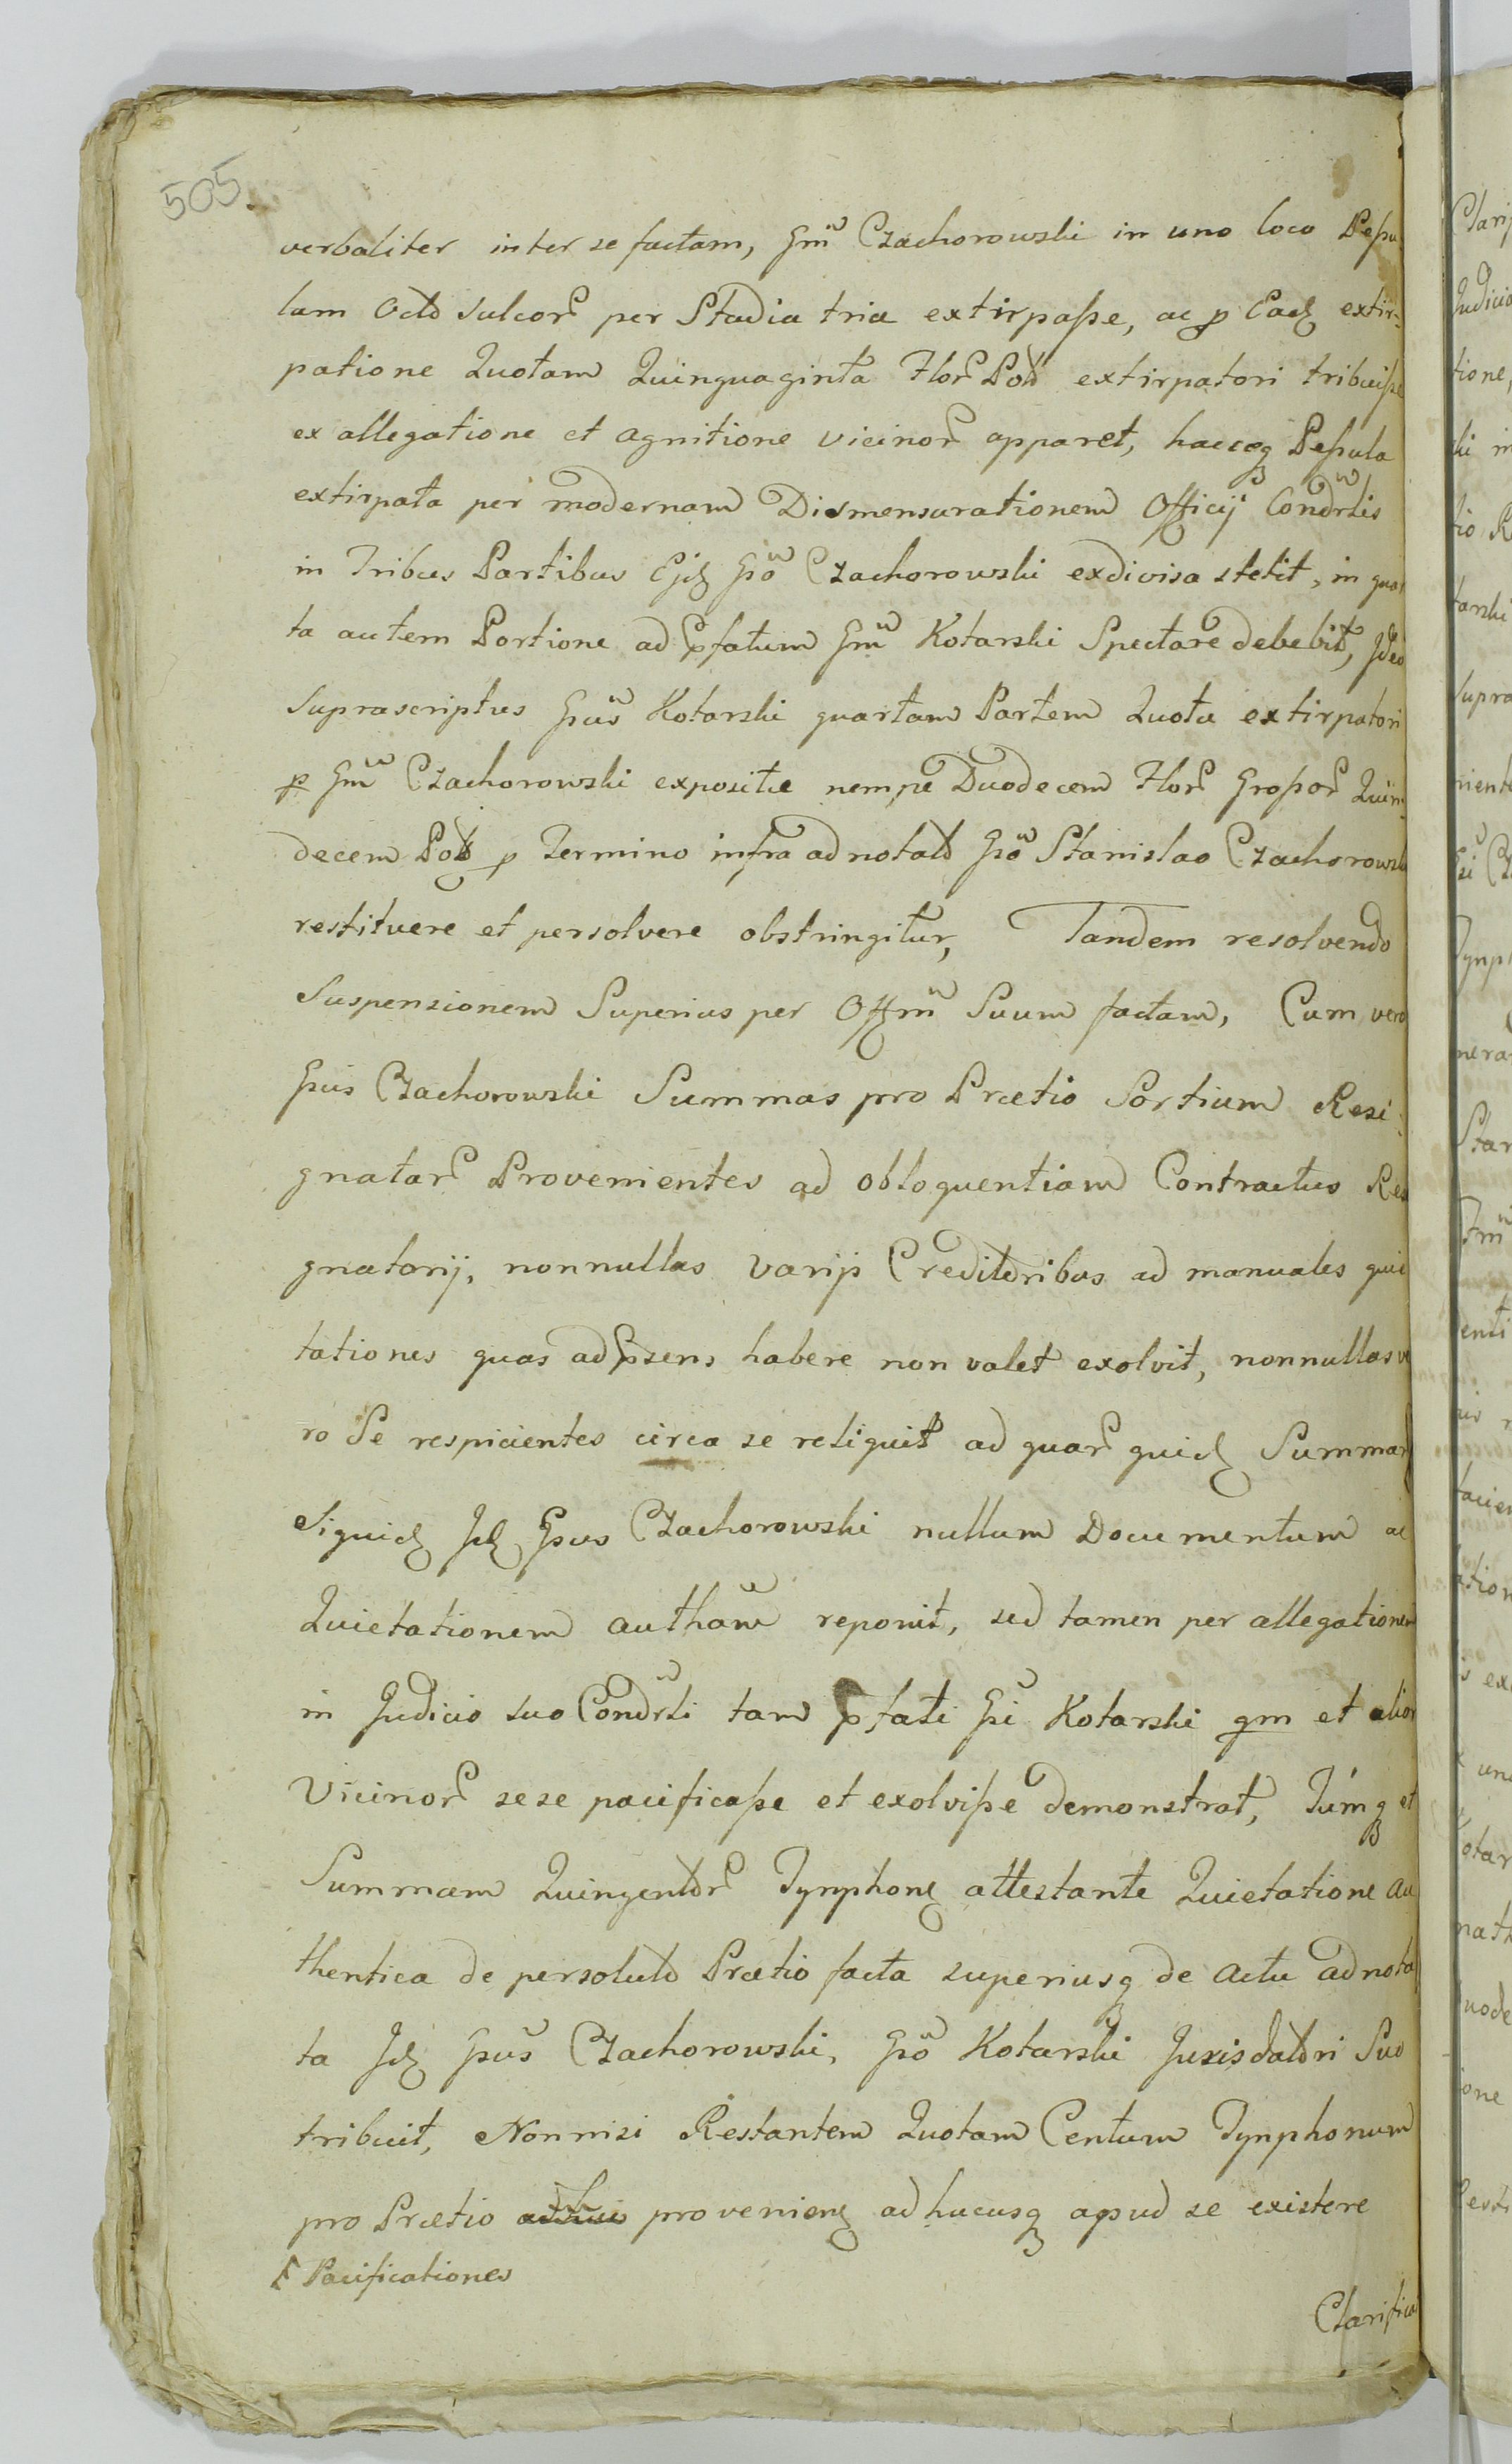 505.
verbaliter inter se factam, Gm̃ Czachorowski in uno loco Pepu
lam Octo sulcor̃ per Stadia tria extirpaße, ac p Eadʒ extir:
patione Quotam Quinquaginta Flor̃ Pol extirpatori tribuiße
ex allegatione et agnitione vicinor̃ apparet, haecqʒ Pepula
extirpata per modernam Dismensurationem Officij Condr̃lis
in Tribus Partibus Ejdʒ Gõ Czachorowski exdivisa stetit, in quar
ta autem Portione ad pfatum Gm̃ Kotarski Spectare debebit, Ideo
Suprascriptus Gũs Kotarski quartam Partem Quotæ extirpatori
p Gm̃ Czachorowski expositæ nempe Duodecem Flor̃ Großor̃ Quin
decem Pol p Termino infra adnotato Gõ Stanislao Czachorowski
restituere et persolvere obstringitur, Tandem resolvendo
Suspensionem Superius per Offm̃ Suum factam, Cum vero
Gũs Czachorowski Summas pro Prætio Sortium Resi:
gnatar̃ Provenientes ad obloquentiam Contractus Resi
gnatorij, nonnullas varijs Creditoribus ad manuales qui
tationes quas ad psens habere non valet exolvit, nonnullas ve
ro Se respicientes circa se reliquit ad quar̃ quidʒ Summar̃
Siquidʒ Idʒ Gũs Czachorowski nullum Documentum ac
Quietationem authãm reponit, sed tamen per allegationem
in Judicio suo Condr̃li tam pfati Gĩ Kotarski qm et alior̃
Vicinor̃ sese pacificaße et exolviße demonstrat, Túmqʒ et
Summam Quingentor̃ Tynphonʒ attestante Quietatione au
thentica de persoluto Prætio facta superiusqʒ de Actu adnota
ta Idʒ Gũs Czachorowski, Gõ Kotarski Jurisdatori Suo
tribuit, Nonnisi Restantem Quotam Centum Tynphonum
pro Prætio provenienʒ adhucusqʒ apud se existere
Pacificationes
Clarifica